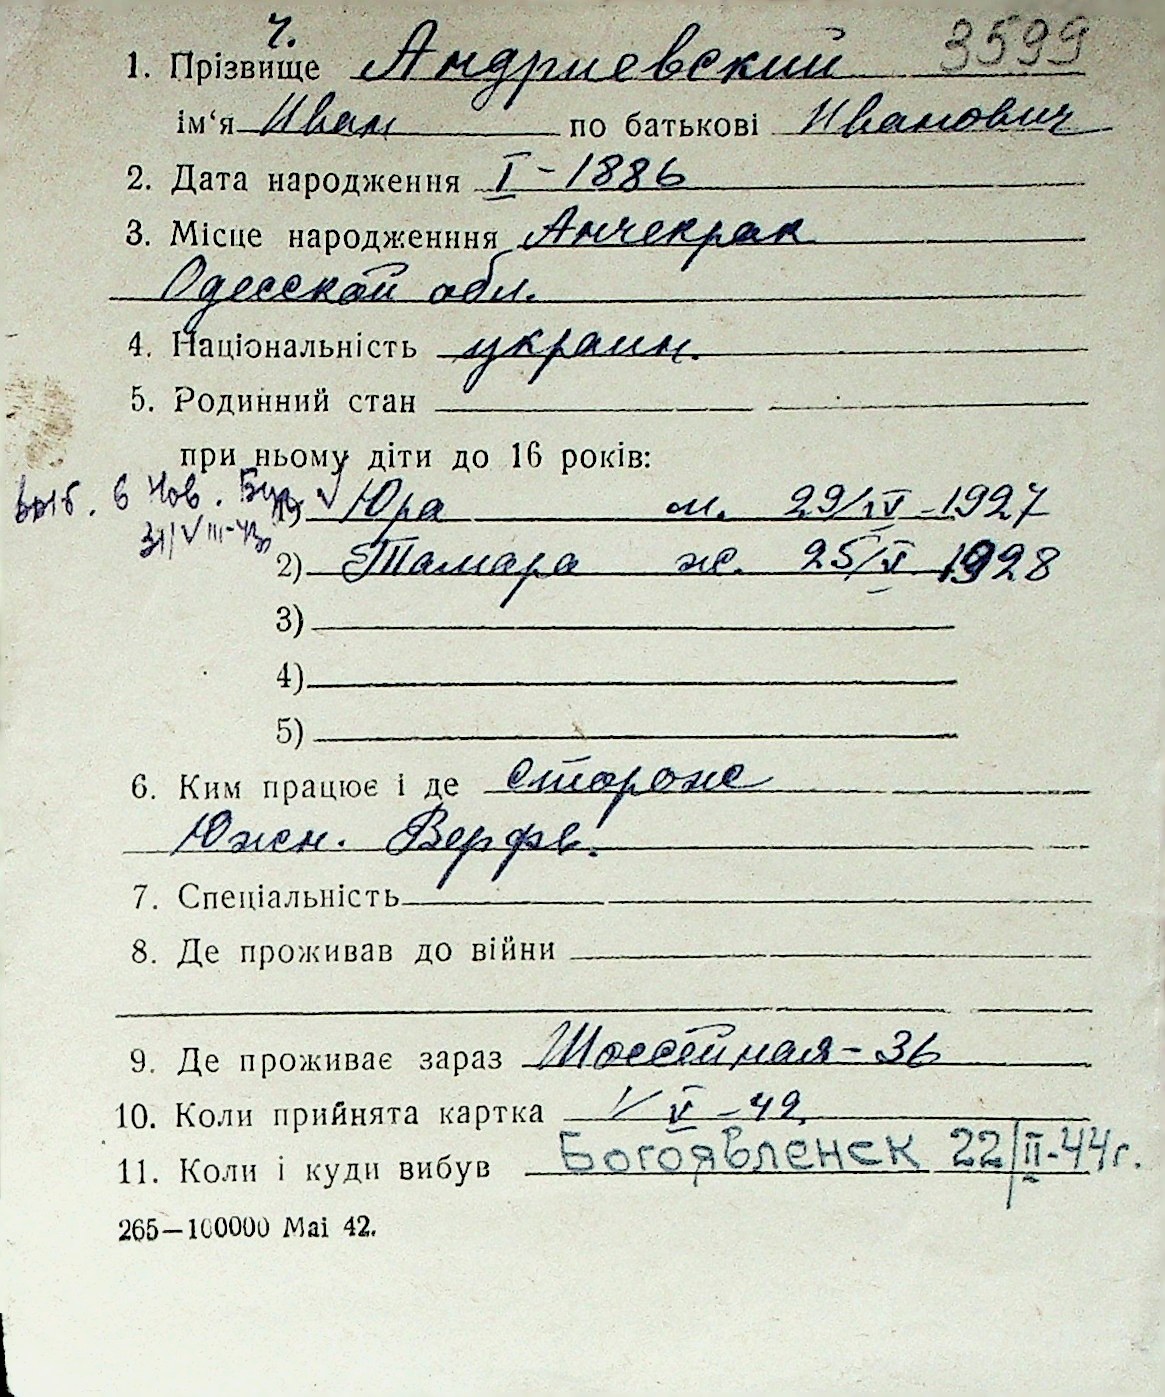 ч.
1. Прізвище Андриевский 3599
ім‘я Иван по батькові Иванович
2. Дата народження I - 1886
3. Місце народженння Анчекрак
Одесской обл.
4. Національність украин.
5. Родинний стан
при ньому діти до 16 років:
выб. в Нов. Буг.
1) Юра м. 29/IV - 1927
31/VIII-43
2) Тамара ж. 25/V 1928
3)
4)
5)
6. Ким працює і де сторож
Южн. Верфь.
7. Спеціальність
8. Де проживав до війни
9. Де проживає зараз Шоссейная - 36
10. Коли прийнята картка V - 42
11. Коли і куди вибув Богоявленск 22/II-44г.
265—100000 Маі 42.